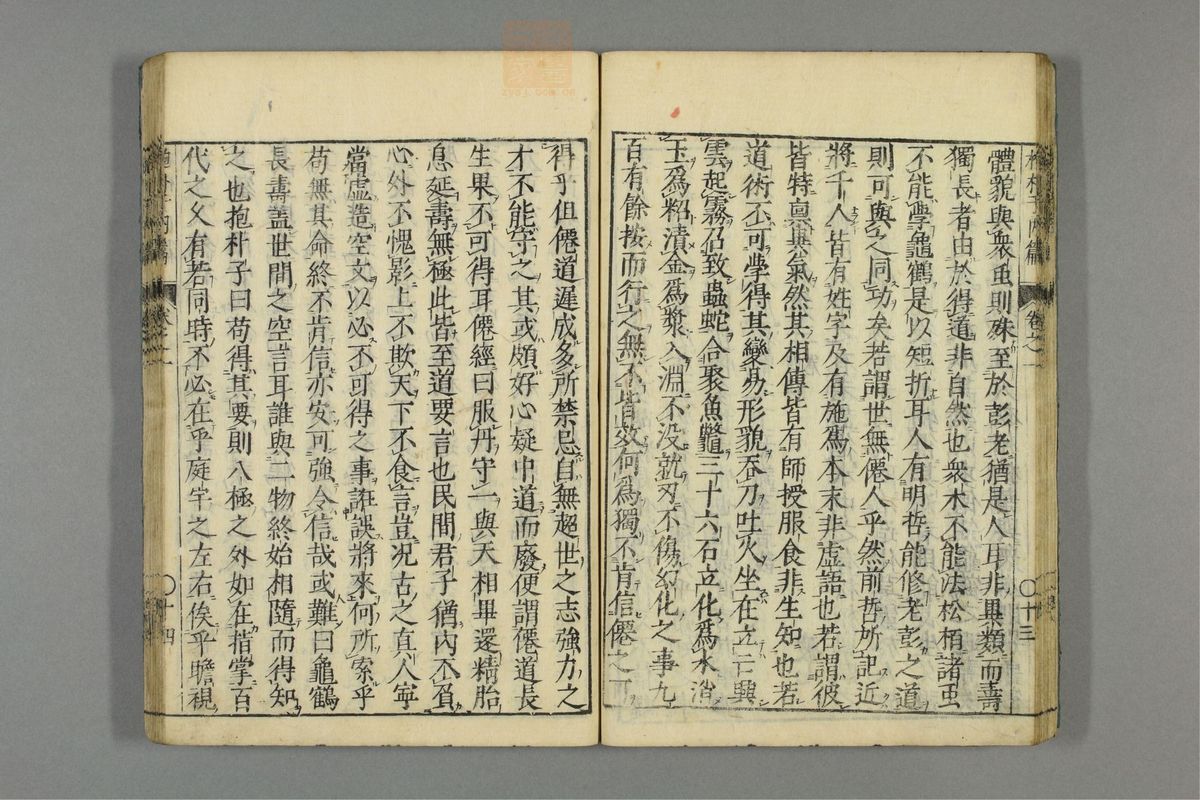 體貌與衆虫則殊至於彭老猶是人耳非異類而壽
獨長者由於得道非自然也衆木不能法松栢諸虫
不能學龜鶴是以短折耳人有明哲能修老彭之道
則可與之同功矣若謂世無僊人乎然前哲所記近
將千人皆有姓字及有施爲本末非虛語也若謂彼
皆特禀異氣然其相傳皆有師授服食非生知也若
道術不可學得其變易形貌吞刀吐火坐在立亡興
雲起霧召致蟲蛇合聚魚鼈三十六石立化爲水消
玉爲粘漬金爲漿入淵不没就刃不傷幻化之事九
百有餘按而行之無不皆效何爲獨不肯信僊之可
卷之二
〇十三
得乎但僊道遲成多所禁忌自無超世之志強力之
才不能守之其或頗好心疑中道而廢便謂僊道長
生果不可得耳僊經曰服丹守一與天相畢還精胎
息延壽無極此皆至道要言也民間君子猶內不負
心外不愧影上不欺天下不食言豈況古之真人寧
當虛造空文以必不可得之事誑誤將來何所索乎
苟無其命終不肯信亦安可強令信哉或難曰龜鶴
長壽蓋世間之空言耳誰與二物終始相隨而得知
之也抱朴子曰苟得其要則八極之外如在指掌百
代之父有若同時不必在乎庭宇之左右俟乎瞻視
〇十四